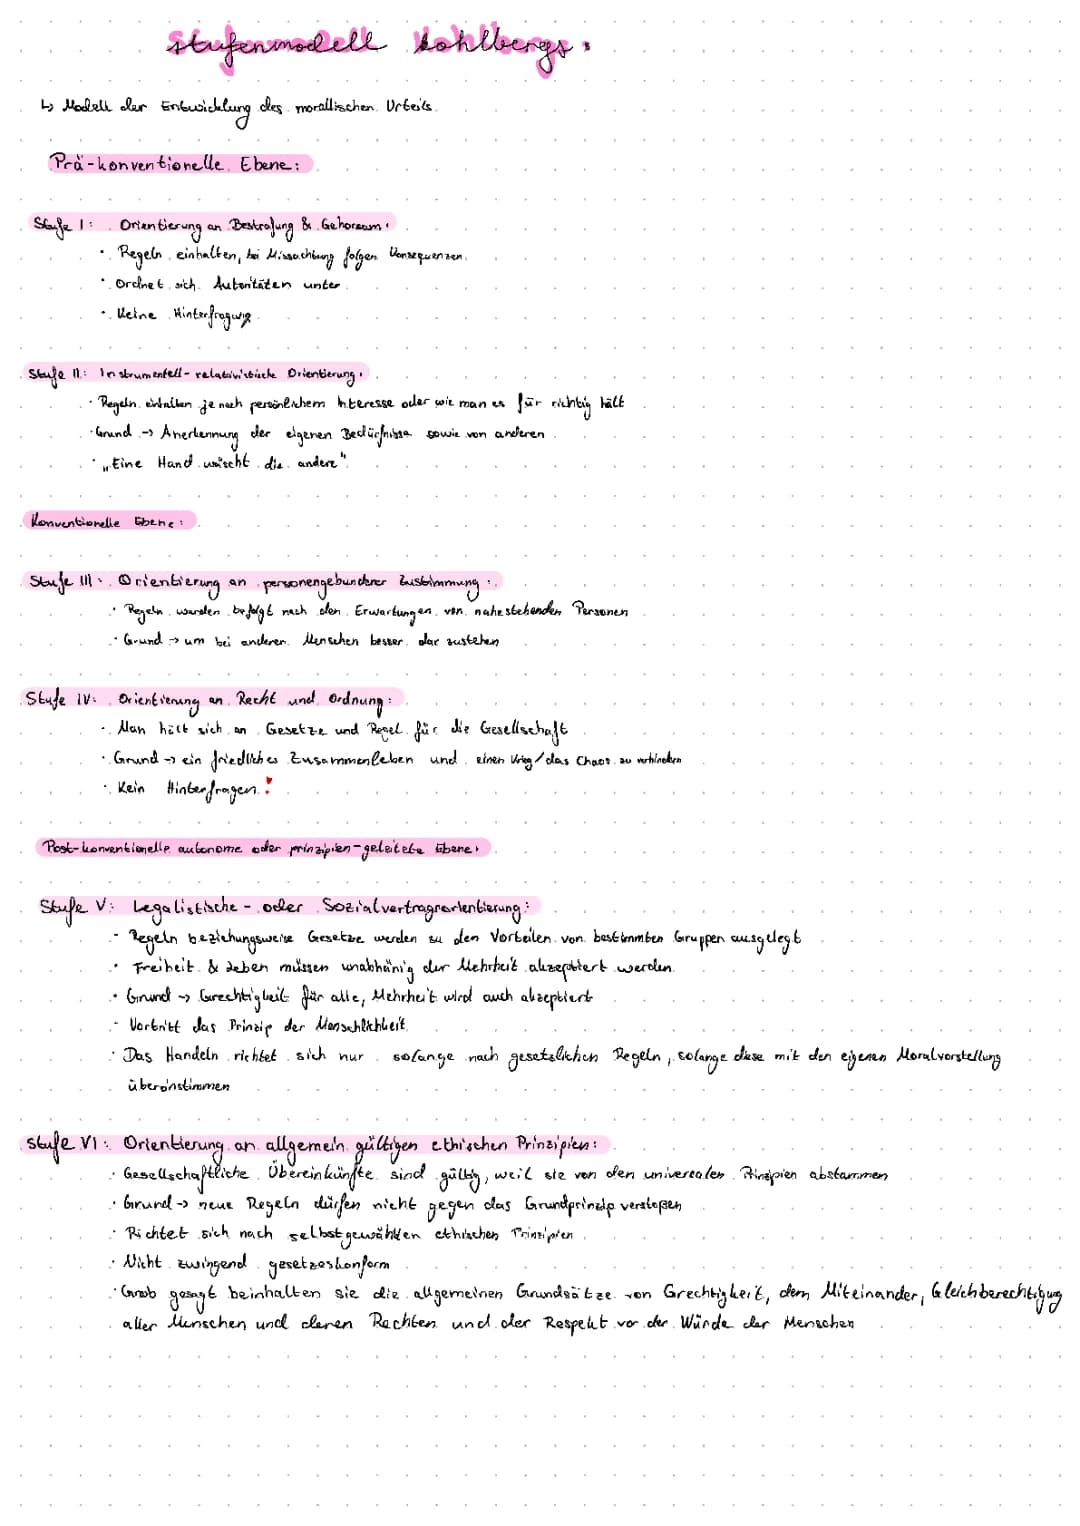 Stufenmodell Kohlbergs:
↳ Modell der Entwicklung des morallischen Urteils
Prä-konventionelle Ebene:
Stufe I: Orientierung an Bestrafung & Gehorsam:
• Regeln einhalten, bei Missachtung folgen Konsequenzen
• Ordnet sich Autoritäten unter
• Keine Hinterfragung
Stufe II: Instrumentell-relativistische Orientierung:
• Regeln einhalten je nach persönlichem Interesse oder wie man es für richtig hält
• Grund → Anerkennung der eigenen Bedürfnisse sowie von anderen
• „Eine Hand wäscht die andere"
Konventionelle Ebene:
Stufe III: Orientierung an personengebundener Zustimmung:
• Regeln werden befolgt nach den Erwartungen von nahestehenden Personen
• Grund → um bei anderen Menschen besser dar zustehen
Stufe IV: Orientierung an Recht und Ordnung:
• Man hält sich an Gesetze und Regel für die Gesellschaft
• Grund → ein friedliches Zusammenleben und einen Krieg/das Chaos zu verhindern
• Kein Hinterfragen!
Post-konventionelle autonome oder prinzipien-geleitete Ebene:
Stufe V: Legalistische- oder Sozialvertragsorientierung:
• Regeln beziehungsweise Gesetze werden zu den Vorteilen von bestimmten Gruppen ausgelegt
• Freiheit & Leben müssen unabhänig der Mehrheit akzeptiert werden
• Grund → Gerechtigkeit für alle, Mehrheit wird auch akzeptiert
• Vertritt das Prinzip der Menschlichkeit
• Das Handeln richtet sich nur solange nach gesetzlichen Regeln, solange diese mit den eigenen Moralvorstellung
überönstimmen
Stufe VI: Orientierung an allgemein gültigen ethischen Prinzipien:
• Gesellschaftliche Übereinkünfte sind gültig, weil sie von den universalen Prinzipien abstammen
• Grund → neue Regeln dürfen nicht gegen das Grundprinzip verstoßen
• Richtet sich nach selbstgewählten ethischen Prinzipien
• Nicht zwingend gesetzeskonform
• Grob gesagt beinhalten sie die allgemeinen Grundsätze von Grechtigkeit, dem Miteinander, Gleichberechtigung
aller Menschen und deren Rechten und der Respekt vor der Würde der Menschen